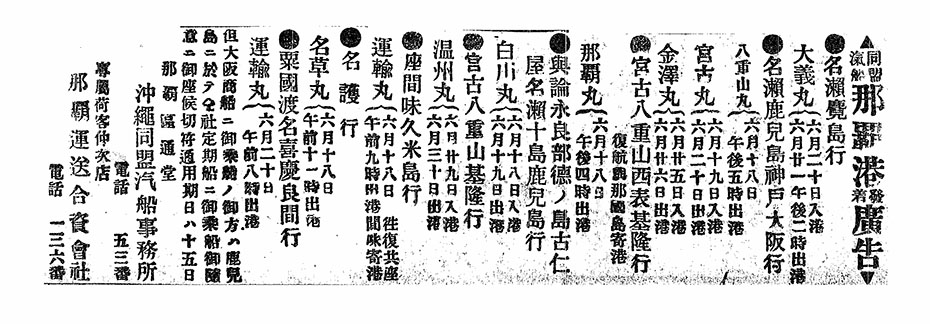 ▲同盟汽船那覇港發着廣告▼
●名瀬覽島行
大義丸 六月二十日入港
六月廿一午後二時出港
●名瀬鹿兒島神戸大阪行
八重山丸 六月十八日
午後五時出港
宮古丸 六月十九日入港
六月二十日出港
金澤丸 六月廿五日入港
六月廿六日出港
●宮古八重山西表基隆行
復航與那國島寄港
那覇丸 六月十八日
午後四時出港
●與論永良部德ノ島古仁
屋名瀬十島鹿兒島行
白川丸 六月十八日入港
六月十九日出港
●宮古八重山基隆行
温州丸 六月廿九日入港
六月三十日出港
●座間味久米島行
運輸丸 六月十八日 往復共座
午前九時出港間味寄港
●名護行
名草丸 六月十八日
午前十一時出港
●粟國渡名喜慶良間行
運輸丸 六月二十日
午前八時出港
但大阪商船ニ御乘船ノ御方ハ鹿兒
島ニ於テ仝社定期船ニ御乘船御隨
意ニ御座候切符通用期日ハ十五日
那覇區通堂
沖繩同盟汽船事務所
電話 五三番
專屬荷客仲次店
那覇運送合資會社
電話 一三六番